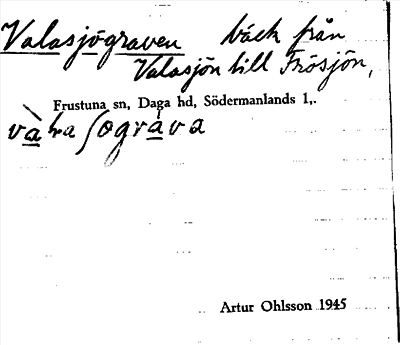 Valasjögraven bäck från
Valasjön till Frösjön,
Frustuna sn, Daga hd, Södermanlands l,.
Artur Ohlsson 1945